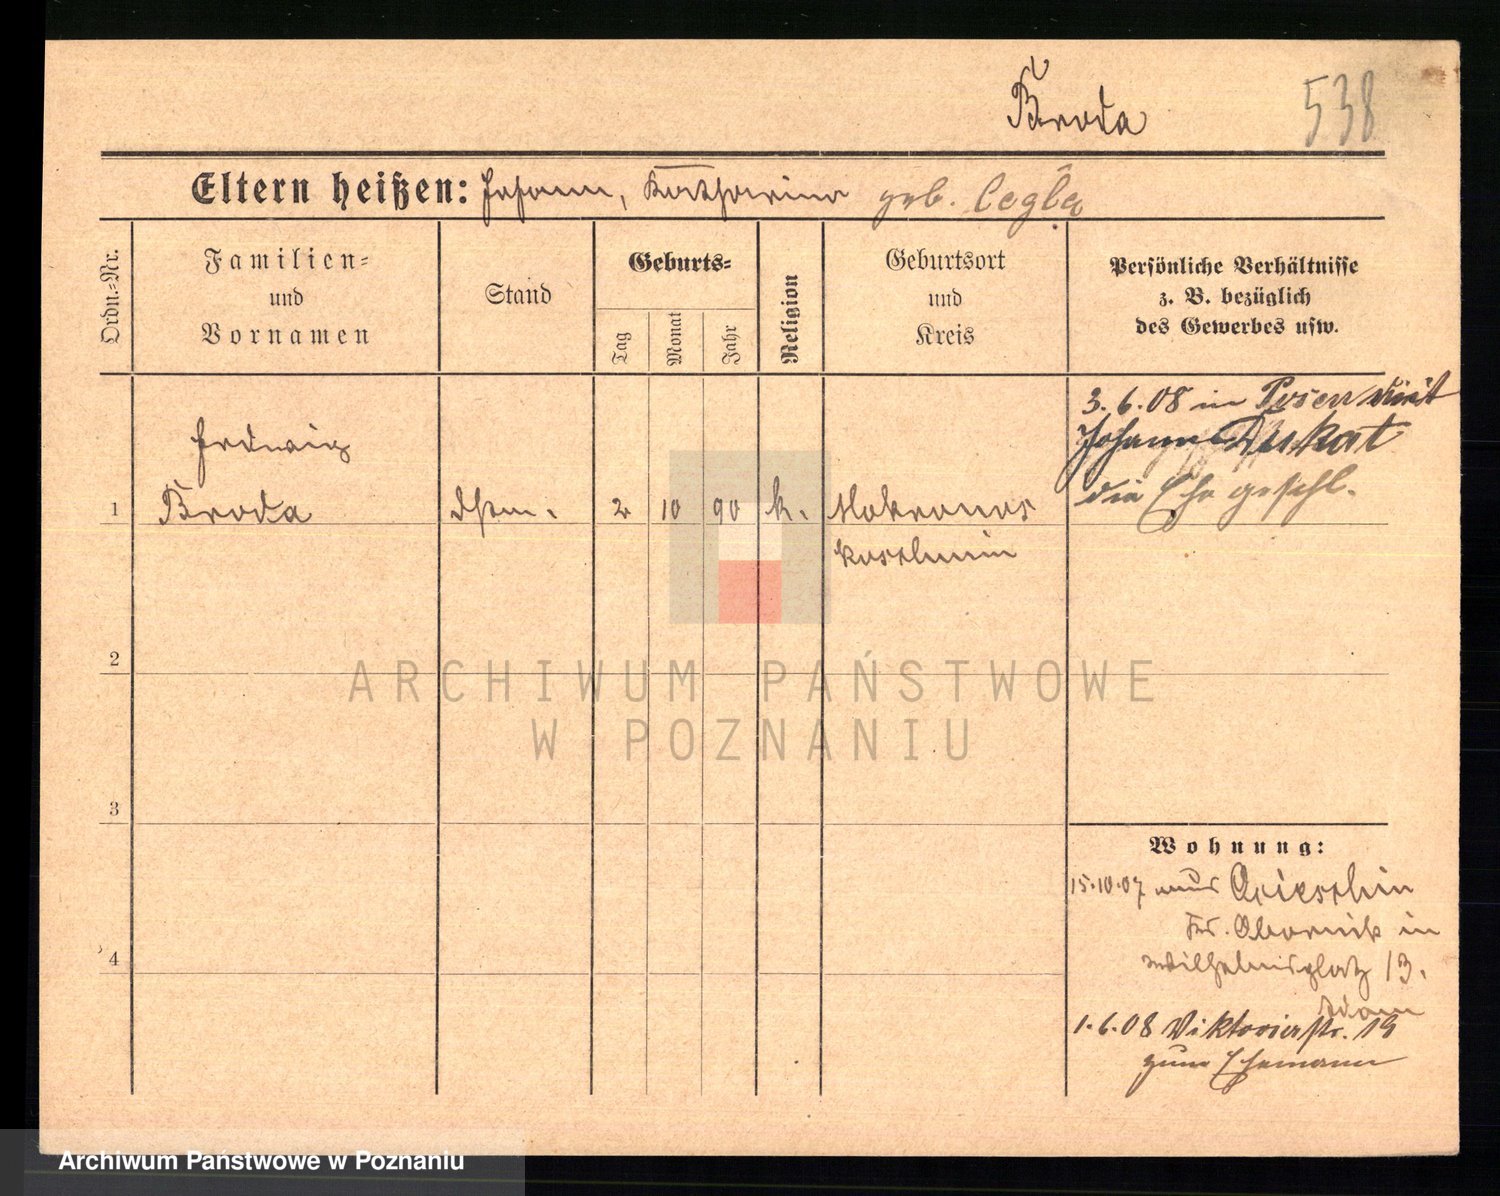 Broda
538
Eltern heißen: Johann, Katharina geb. Cegła
Ordn.-Nr.
Familien-
und
Vornamen
Stand
Geburts-
Tag
Monat
Jahr
Religion
Geburtsort
und
Kreis
Persönliche Verhältnisse
z. B. bezüglich
des Gewerbes usw.
3. 6. 08 in Posen mit
Johann Dukat
die Ehe geschl.
Hedwig
1 Broda
2 10 90 k. Mokronos
Koschmin
2
3
4
Wohnung:
15.10.07 aus
Kr. Obornik in
Wilhelmsplatz 13.
Adam
1.6.08 Viktoriastr. 19
zum Ehemann
ARCHIWUM PAŃSTWOWE
W POZNANIU
Archiwum Państwowe w Poznaniu